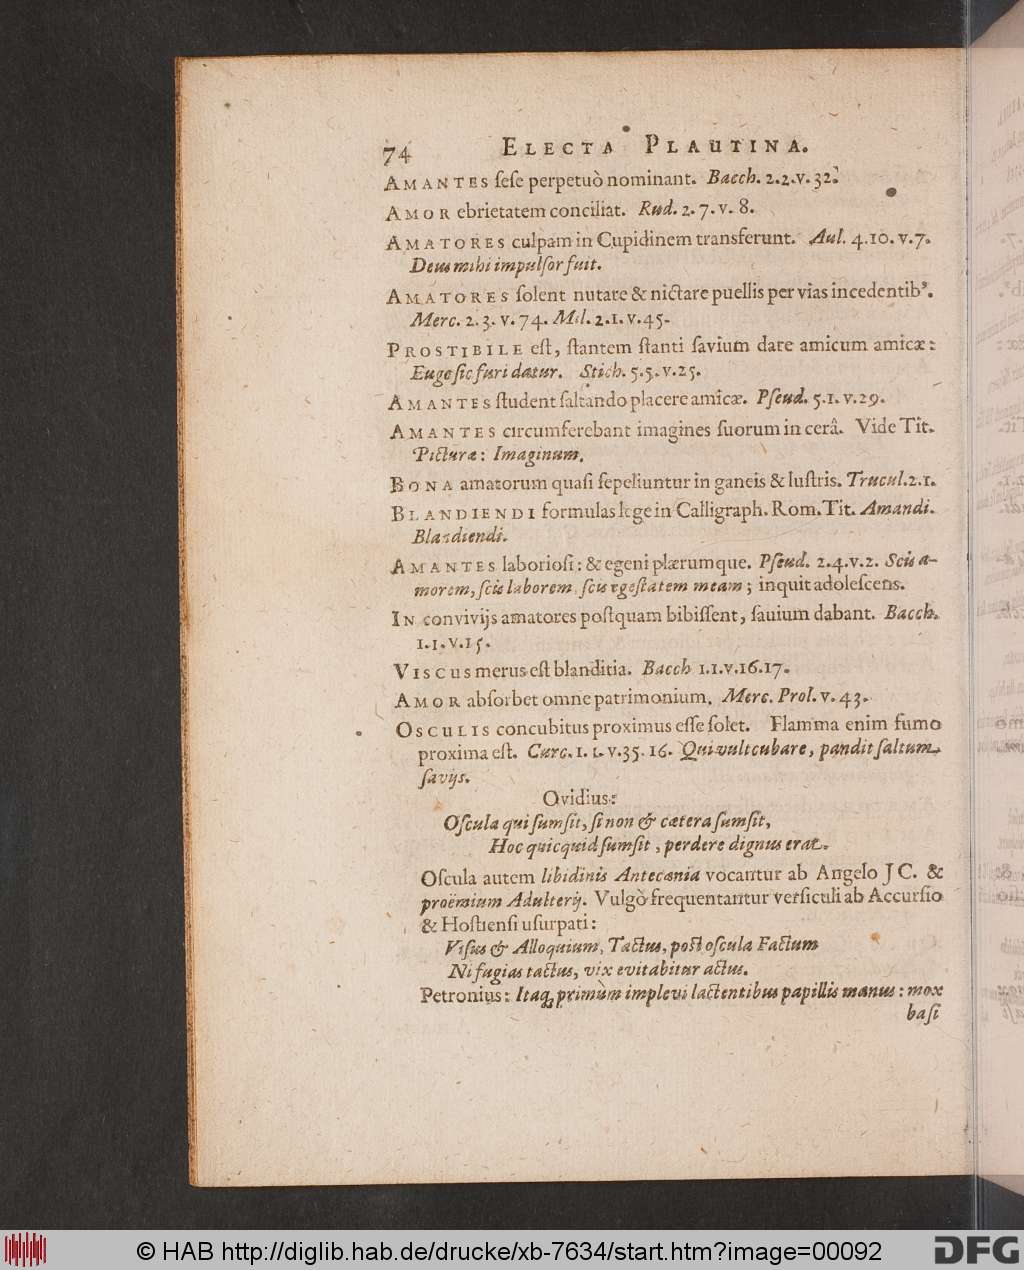 74 ELECTA PLAUTINA.
AMANTES ſeſe perpetuò nominant. Bacch. 2.2.v.32.
AMOR ebrietatem conciliat. Rud. 2.7.v.8.
AMATORES culpam in Cupidinem transferunt. Aul. 4.10.v.7.
Deus mihi impulſor fuit.
AMATORES ſolent nutare & nictare puellis per vias incedentibꝰ.
Merc. 2.3.v.74. Mil. 2.1.v.45.
PROSTIBILE eſt, ſtantem ſtanti ſavium date amicum amicæ:
Euge ſic furi datur. Stich. 5.5.v.25.
AMANTES ſtudent ſaltando placere amicæ. Pſeud. 5.1.v.29.
AMANTES circumferebant imagines ſuorum in cerâ. Vide Tit.
Picturæ: Imaginum.
BONA amatorum quaſi ſepeliuntur in ganeis & luſtris. Trucul.2.1.
BLANDIENDI formulas lege in Calligraph. Rom. Tit. Amandi.
Blandiendi.
AMANTES laborioſi: & egeni plærumque. Pſeud. 2.4.v.2. Scis a-
morem, ſcis laborem, ſcis egeſtatem meam; inquit adoleſcens.
IN convivijs amatores poſtquam bibiſſent, ſauium dabant. Bacch.
1.1.v.15.
VISCUS merus eſt blanditia. Bacch 1.1.v.16.17.
AMOR abſorbet omne patrimonium, Merc. Prol. v. 43.
OSCULIS concubitus proximus eſſe ſolet. Flamma enim fumo
proxima eſt. Curc. 1.1.v.35.16. Qui vult cubare, pandit ſaltum
ſavijs.
Ovidius:
Oſcula qui ſumſit, ſi non & cætera ſumſit,
Hoc quicquid ſumſit, perdere dignus erat.
Oſcula autem libidinis Antecænia vocantur ab Angelo JC. &
proëmium Adulterij. Vulgò frequentantur verſiculi ab Accurſio
& Hoſtienſi uſurpati:
Viſus & Alloquium, Tactus, poſt oſcula Factum
Ni fugias tactus, vix evitabitur actus.
Petronius: Itaq; primùm implevi lactentibus papillis manus: mox
baſi
© HAB http://diglib.hab.de/drucke/xb-7634/start.htm?image=00092
DFG